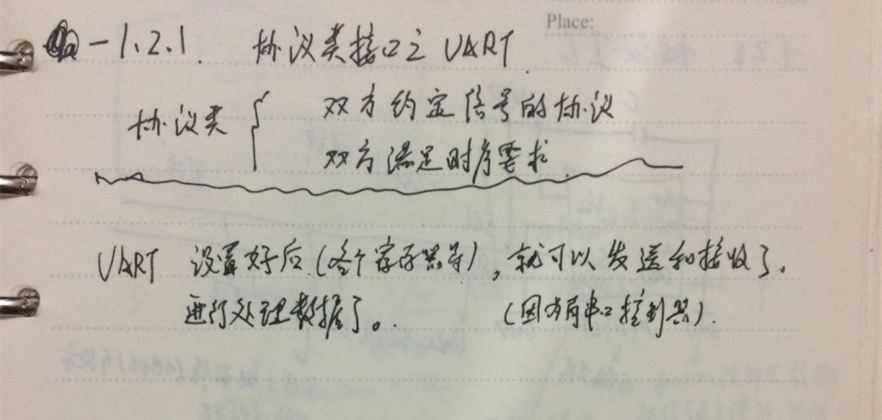 Place:
-1.2.1. 协议类接口之 UART.
协议类 { 双方约定信号的协议
双方满足时序要求
UART 设置好后(各个寄存器等),就可以发送和接收了,
进行处理数据了。 (因为有串口控制器).